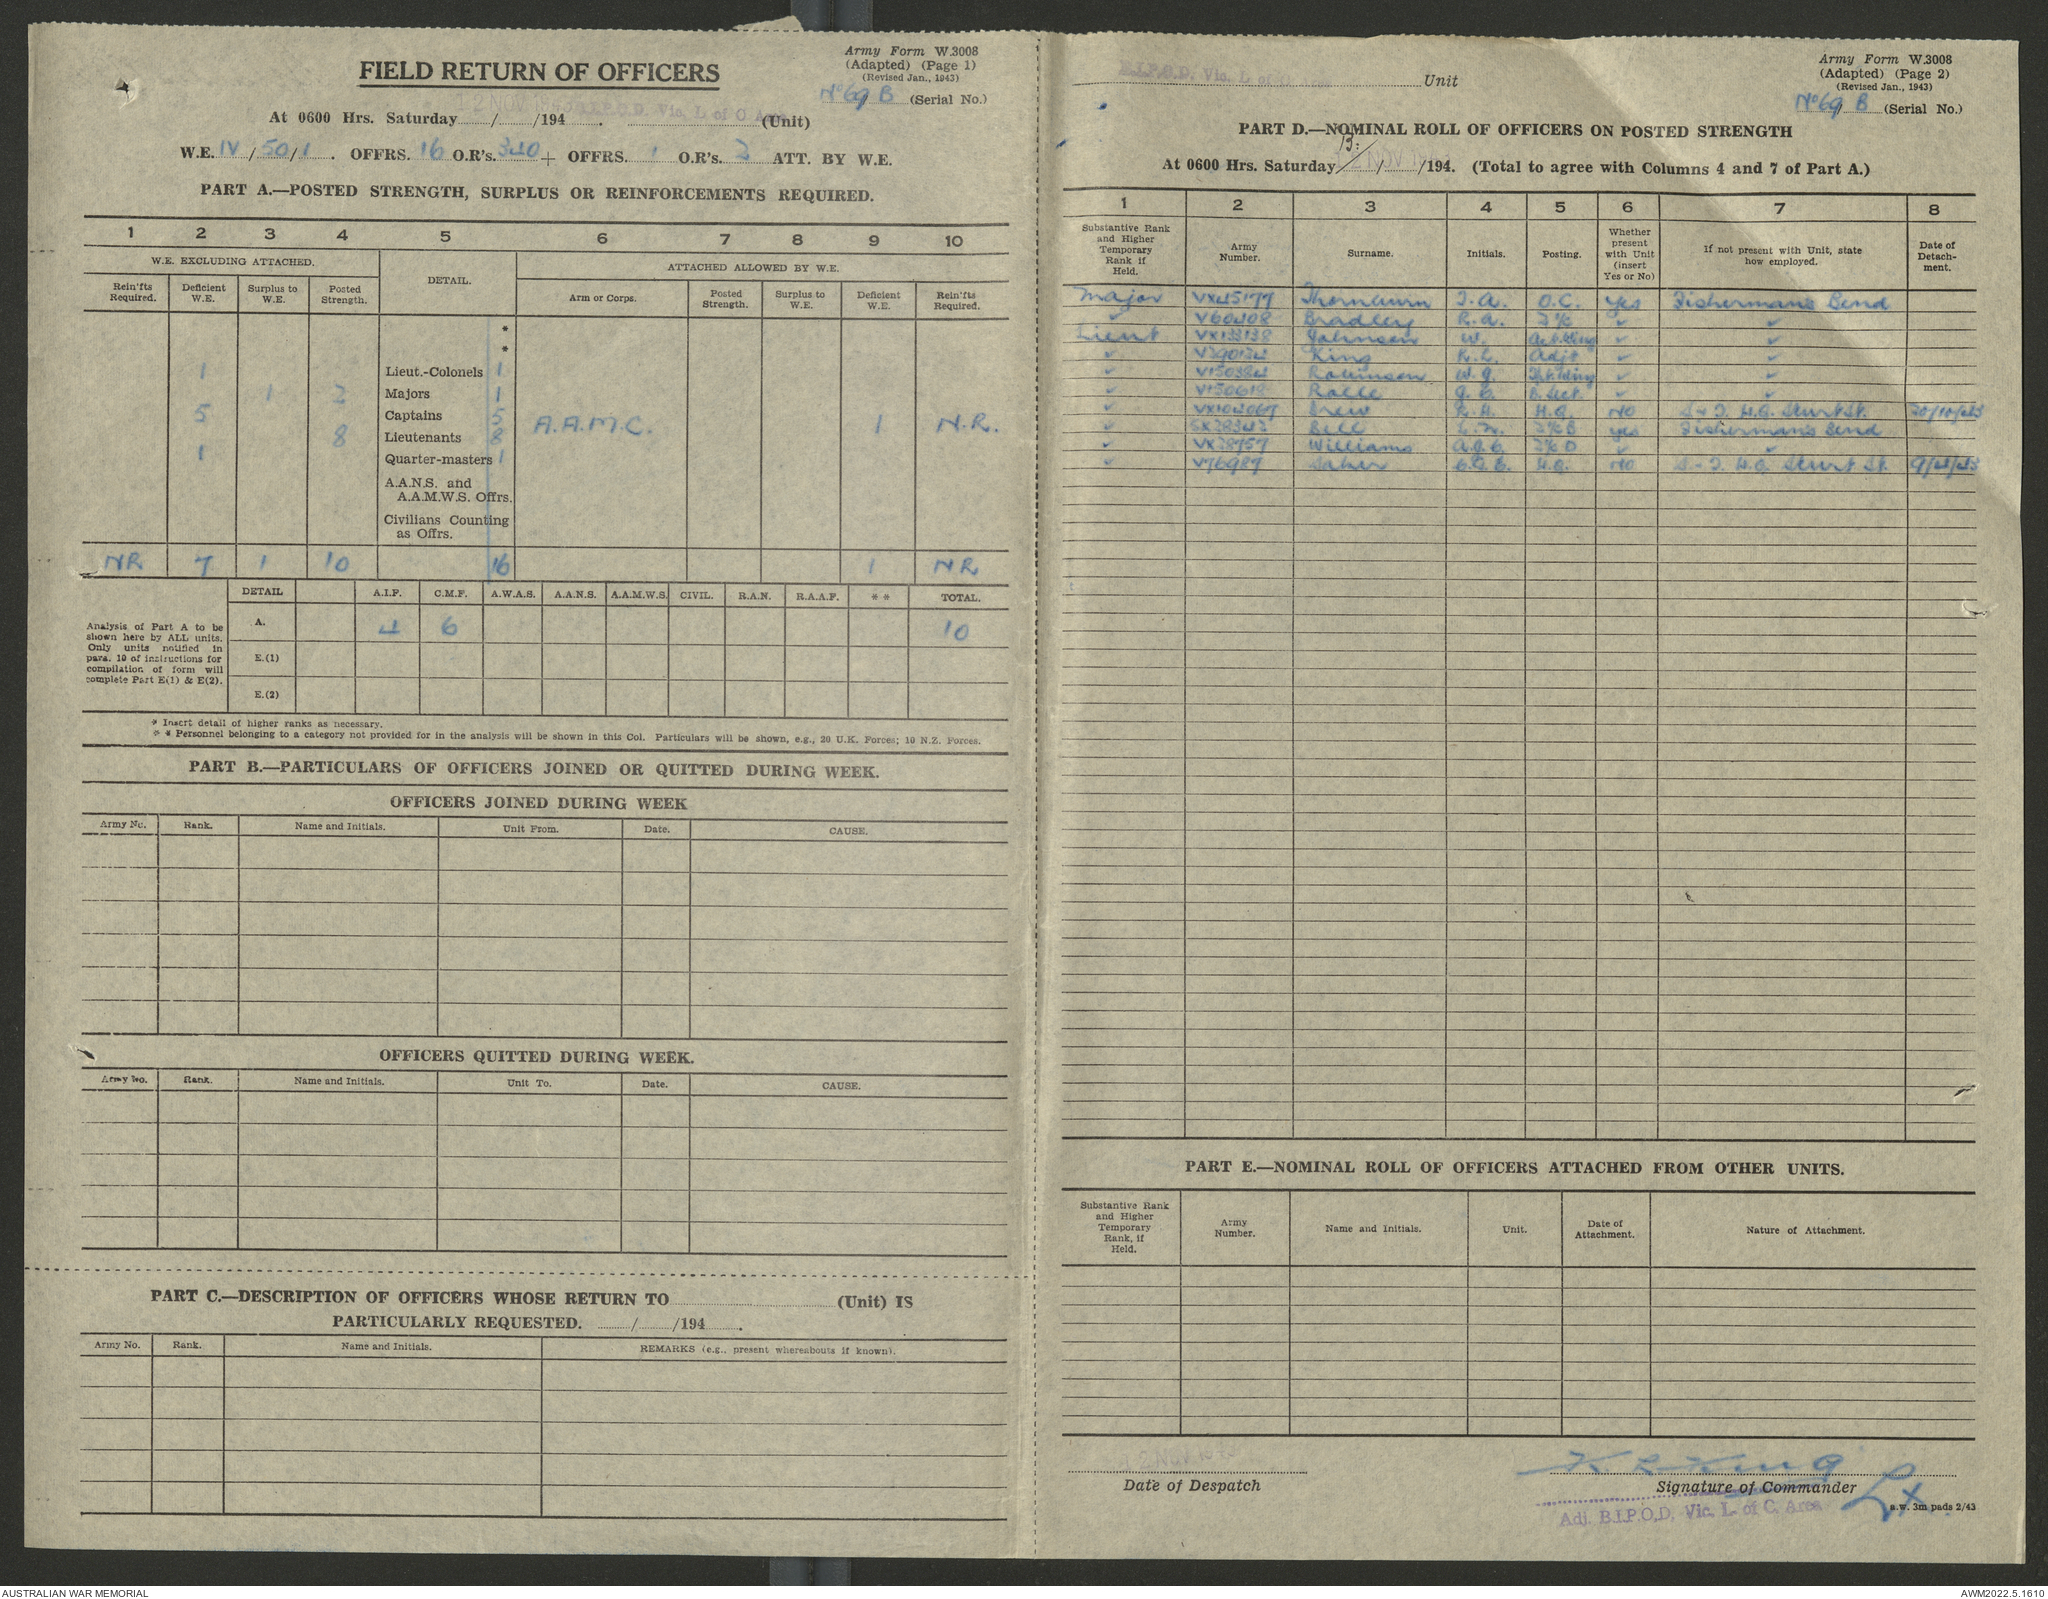 FIELD RETURN OF OFFICERS
Army Form W.3008
(Adapted) (Page 1)
(Revised Jan., 1943)
No 69 B (Serial No.)
At 0600 Hrs. Saturday / /194 . (Unit)
W.E. IV / 50 / 1 . OFFRS. 16 O.R's. 340 + OFFRS. 1 O.R's. 2 ATT. BY W.E.
PART A.—POSTED STRENGTH, SURPLUS OR REINFORCEMENTS REQUIRED.
1 2 3 4 5 6 7 8 9 10
W.E. EXCLUDING ATTACHED. DETAIL. ATTACHED ALLOWED BY W.E.
Rein'fts Required. Deficient W.E. Surplus to W.E. Posted Strength. Arm or Corps. Posted Strength. Surplus to W.E. Deficient W.E. Rein'fts Required.
*
*
1 Lieut.-Colonels 1
1 2 Majors 1
5 Captains 5 A.A.M.C. 1 N.R.
8 Lieutenants 8
1 Quarter-masters 1
A.A.N.S. and
A.A.M.W.S. Offrs.
Civilians Counting
as Offrs.
NR 7 1 10 16 1 NR
DETAIL A.I.F. C.M.F. A.W.A.S. A.A.N.S. A.A.M.W.S. CIVIL. R.A.N. R.A.A.F. * * TOTAL.
Analysis of Part A to be
shown here by ALL units.
Only units notified in
para. 10 of instructions for
compilation of form will
complete Part E(1) & E(2).
A. 4 6 10
E.(1)
E.(2)
* Insert detail of higher ranks as necessary.
* * Personnel belonging to a category not provided for in the analysis will be shown in this Col. Particulars will be shown, e.g., 20 U.K. Forces; 10 N.Z. Forces.
PART B.—PARTICULARS OF OFFICERS JOINED OR QUITTED DURING WEEK.
OFFICERS JOINED DURING WEEK
Army No. Rank. Name and Initials. Unit From. Date. CAUSE.
OFFICERS QUITTED DURING WEEK.
Army No. Rank. Name and Initials. Unit To. Date. CAUSE.
PART C.—DESCRIPTION OF OFFICERS WHOSE RETURN TO (Unit) IS
PARTICULARLY REQUESTED. / /194 .
Army No. Rank. Name and Initials. REMARKS (e.g., present whereabouts if known).
Army Form W.3008
(Adapted) (Page 2)
(Revised Jan., 1943)
No 69 B (Serial No.)
B.I.P.O.D. Vic. L of Unit
PART D.—NOMINAL ROLL OF OFFICERS ON POSTED STRENGTH
13
At 0600 Hrs. Saturday / /194. (Total to agree with Columns 4 and 7 of Part A.)
1 2 3 4 5 6 7 8
Substantive Rank and Higher Temporary Rank if Held. Army Number. Surname. Initials. Posting. Whether present with Unit (insert Yes or No) If not present with Unit, state how employed. Date of Detachment.
Major VX45177 Thornburn O.C. Yes Fisherman's Bend
" V60408 Bradley R.A. 2 i/c " "
Lieut VX133138 Johnson W. " "
" King R.L. Adjt " "
" V150384 Robinson W.G. " "
" V150618 Rolle " "
" Drew R.H. H.Q. NO H.Q. Sturt St. 20/10/43
" SX28342 Bell Yes Fisherman's Bend
" VX28757 Williams " "
" V76987 H.Q. NO H.Q. Sturt St. 9/4/43
PART E.—NOMINAL ROLL OF OFFICERS ATTACHED FROM OTHER UNITS.
Substantive Rank and Higher Temporary Rank, if Held. Army Number. Name and Initials. Unit. Date of Attachment. Nature of Attachment.
12 NOV
Date of Despatch
Signature of Commander
Adj. B.I.P.O.D. Vic. L. of C. Area
a.w. 3m pads 2/43
AUSTRALIAN WAR MEMORIAL
AWM2022.5.1610